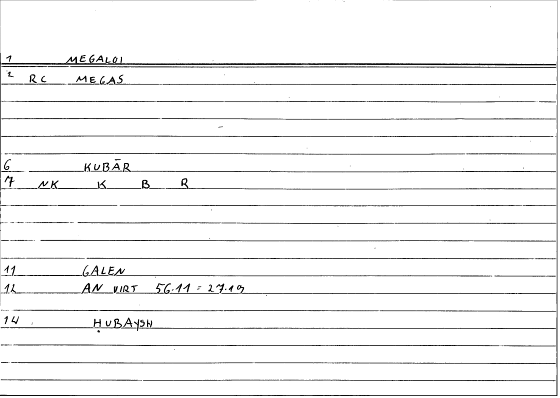 1 MEGALOI
2 RC MEGAS
6 KUBĀR
7 NK K B R
11 GALEN
12 AN VIRT 56.11 = 27.19
14 ḤUBAYSH